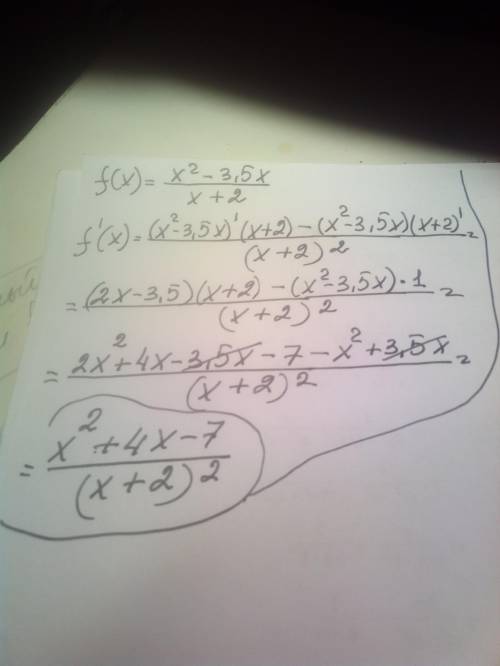 f(x) = (x² - 3,5x)/(x + 2)
f'(x) = ((x² - 3,5x)'(x+2) - (x² - 3,5x)(x+2)')/(x+2)² =
= ((2x - 3,5)(x+2) - (x² - 3,5x)·1)/(x+2)² =
= (2x² + 4x - 3,5x - 7 - x² + 3,5x)/(x+2)² =
= (x² + 4x - 7)/(x+2)²